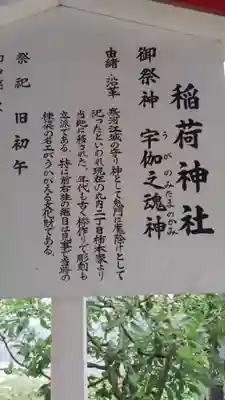 稲荷神社
御祭神 宇伽之魂神
うがのみたまのかみ
由緒・沿革 寒河江城の守り神として鬼門に魔除けとして
祀ったといわれ現在の丸内二丁目柿本家より
当地に移された。年代も古く桧作りで彫刻も
立派である。特に前右柱の継目は見事で当時の
棟梁の名工がうかがえる文化財である。
祭祀 旧初午